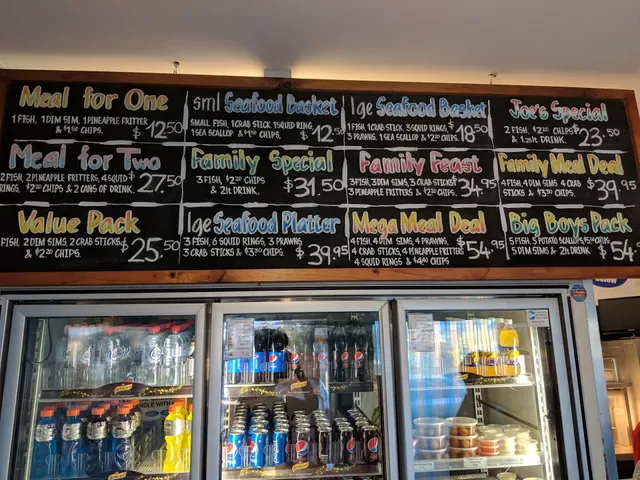 Meal for One
1 FISH, 1 DIM SIM, 1 PINEAPPLE FRITTER
& $1.50 CHIPS. $12.50
Sml Seafood Basket
SMALL FISH, 1 CRAB STICK 1 SQUID RING,
1 SEA SCALLOP & $1.50 CHIPS. $12.50
lge Seafood Basket
1 FISH, 1 CRAB STICK, 3 SQUID RINGS
3 PRAWNS, 1 SEA SCALLOP & $2.20 CHIPS. $18.50
Joe's Special
2 FISH, $2.20 CHIPS
& 1.25lt DRINK. $23.50
Meal for Two
2 FISH, 2 PINEAPPLE FRITTERS, 4 SQUID
RINGS, $2.20 CHIPS & 2 CANS OF DRINK. $27.50
Family Special
3 FISH, $2.20 CHIPS
& 2lt DRINK. $31.50
Family Feast
3 FISH, 3 DIM SIMS, 3 CRAB STICKS
3 PINEAPPLE FRITTERS $34.95
Family Meal Deal
4 FISH, 4 DIM SIMS, 4 CRAB
STICKS & $3.30 CHIPS. $39.95
Value Pack
FISH, 2 DIM SIMS, 2 CRAB STICKS
& $2.20 CHIPS. $25.50
lge Seafood Platter
3 FISH, 6 SQUID RINGS, 3 PRAWNS,
3 CRAB STICKS & $3.30 CHIPS. $39.95
Mega Meal Deal
4 FISH, 4 DIM SIMS, 4 PRAWNS,
4 CRAB STICKS, 4 PINEAPPLE FRITTERS
4 SQUID RINGS & $4.40 CHIPS $54.95
Big Boys Pack
5 FISH, 5 POTATO SCALLOPS, CHIPS
5 DEM SIMS & 2lt DRINK. $54.
pepsi